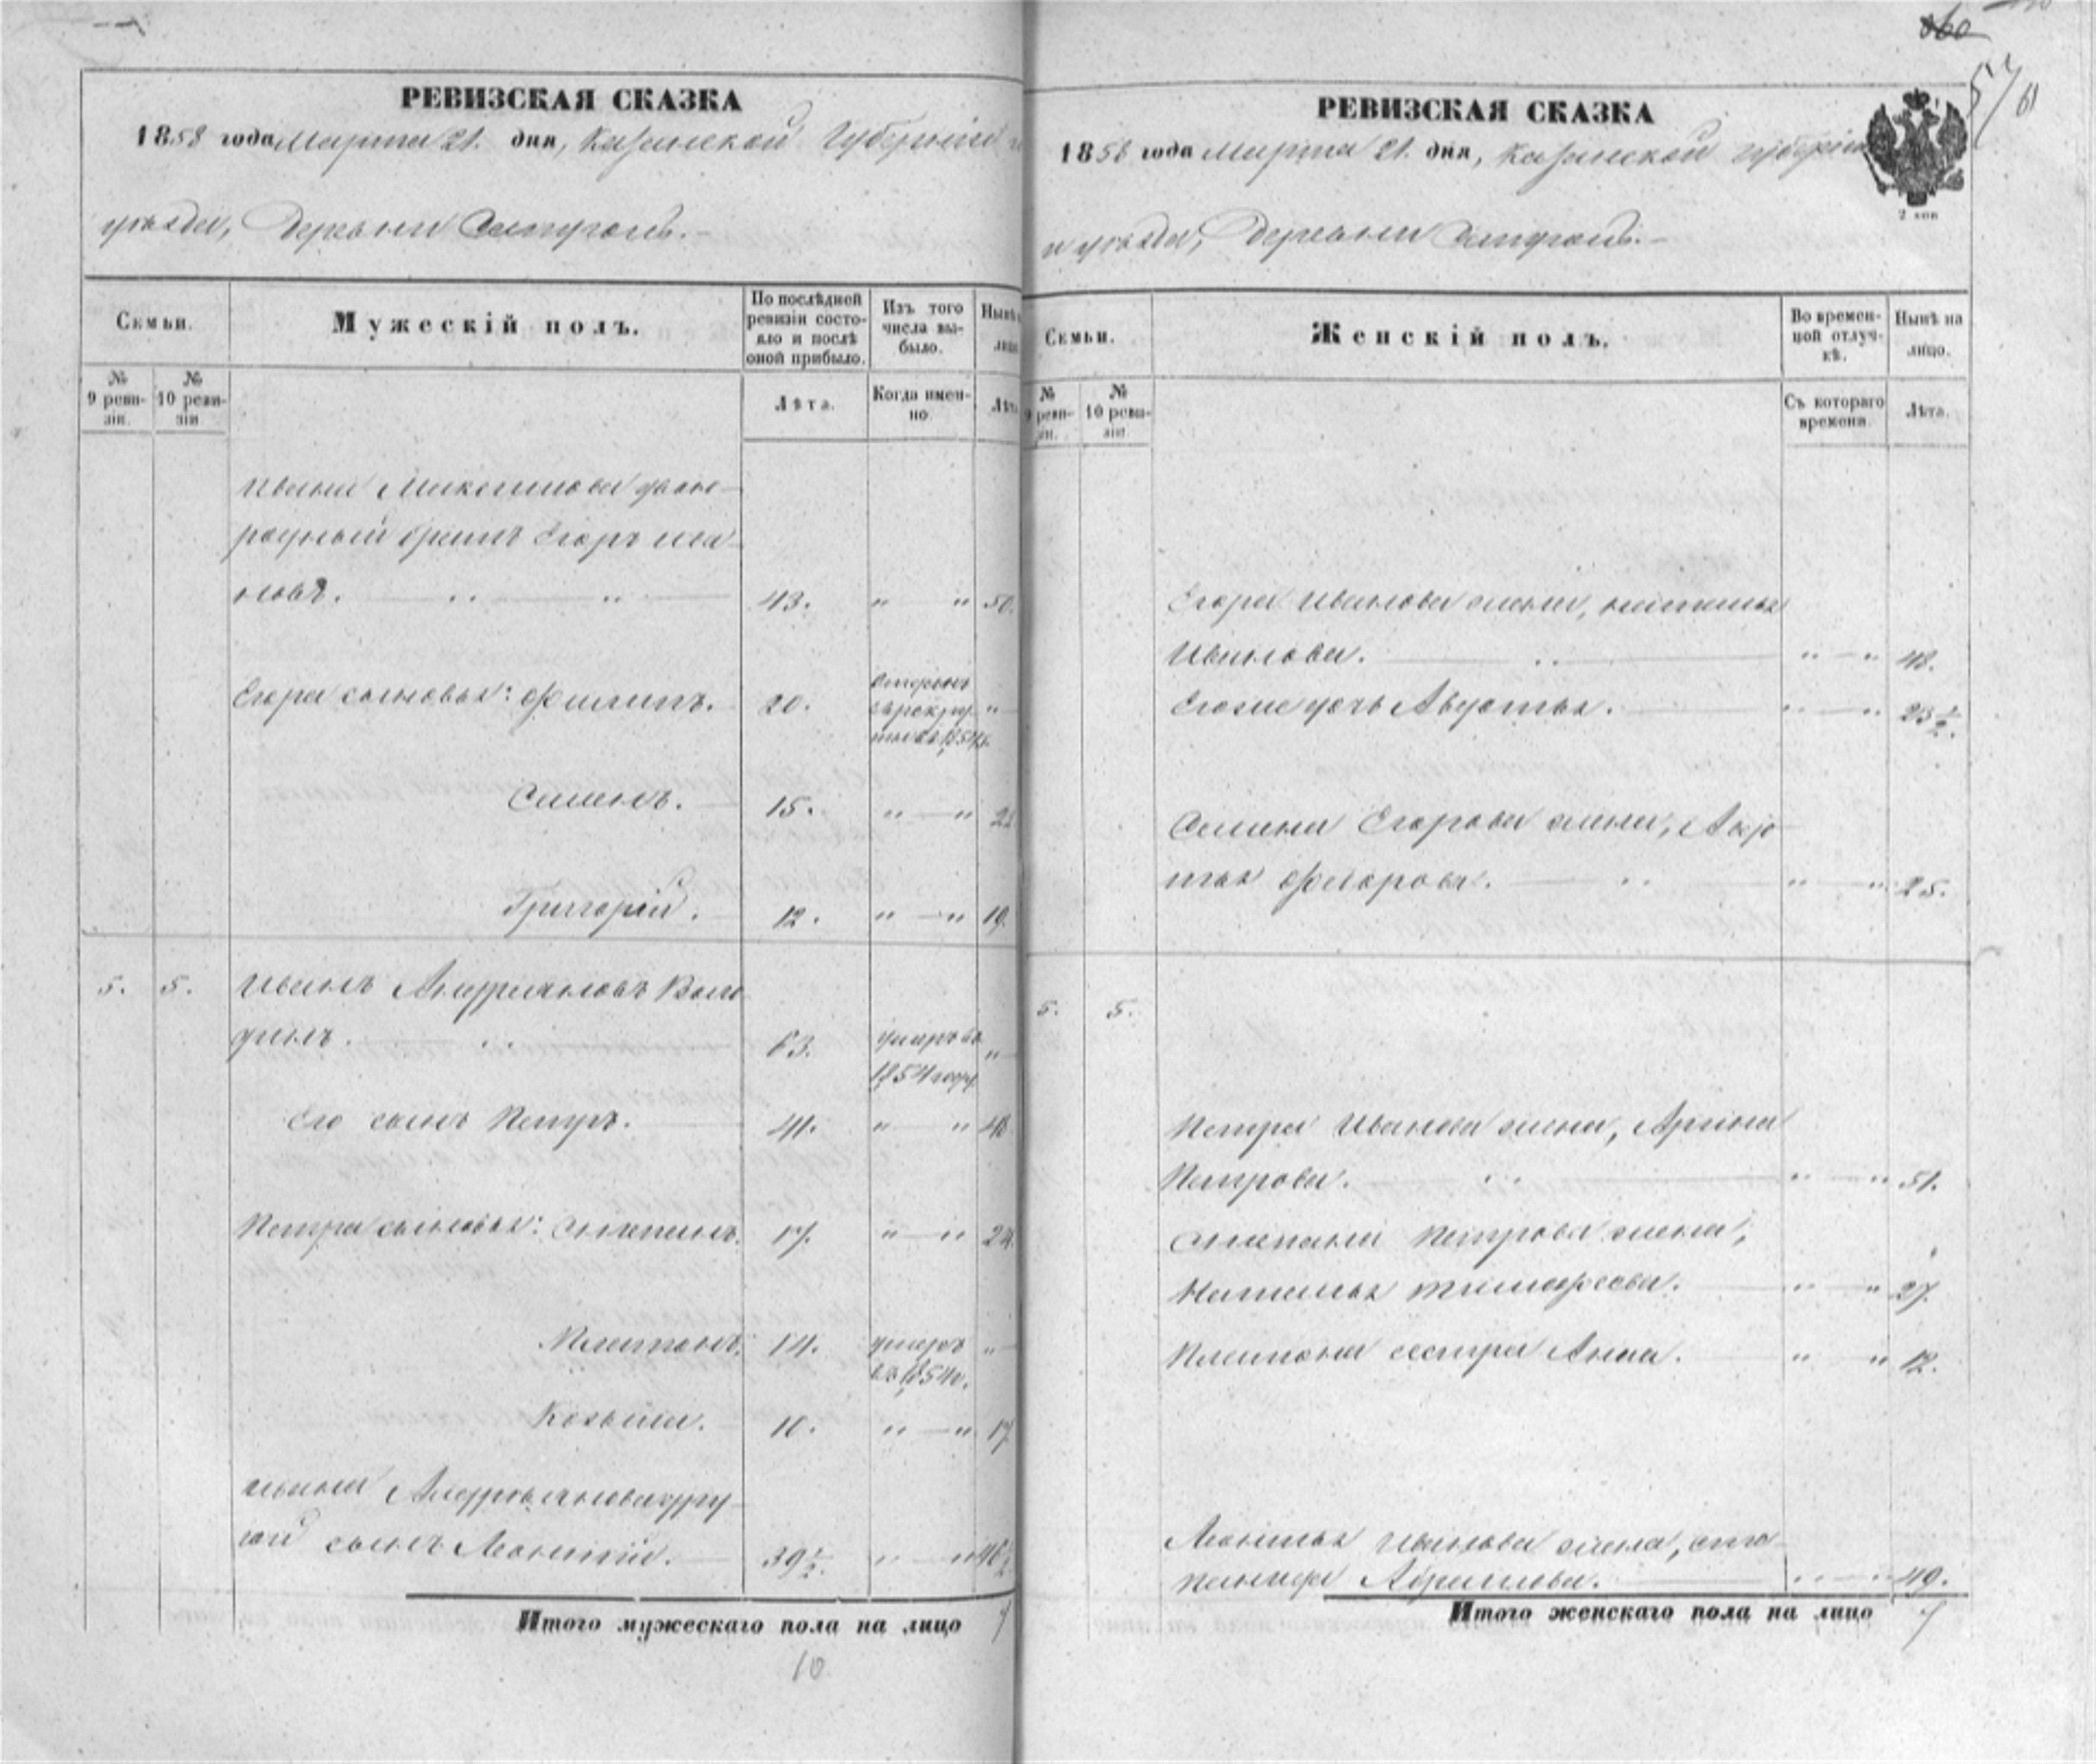 РЕВИЗСКАЯ СКАЗКА
1858 года Марта 21. дня, Казанской Губерніи и
уѣзда, Деревни
Семьи.
Мужескій полъ.
По послѣдней ревизіи состояло и послѣ оной прибыло.
Изъ того числа выбыло.
Нынѣ
лицо
№ 9 ревизіи.
№ 10 ревизіи
Лѣта.
Когда именно
Лѣта
Ивана Максимова двою-
родный братъ Егоръ Ива-
новъ. 43. " " 50.
Егора сыновья: Филипъ. 20. "
Семенъ. 15. " " 22
Григорій. 12. " " 19.
5. 5. Иванъ Андреяновъ
63. умеръ въ 1854 году "
Его сынъ Петръ. 41. " " 48
Петра сыновья: Степанъ. 17. " " 24.
Платонъ. 14. умеръ въ 1854 г. "
Козьма. 10. " " 17
Ивана Андреянова дру-
гой сынъ Леонтій. 39½. " " 46½
Итого мужескаго пола на лицо 7
10
360
57
61
РЕВИЗСКАЯ СКАЗКА
1858 года Марта 21. дня, Казанской Губерніи
2 коп
и уѣзда, Деревни
Семьи.
Женскій полъ.
Во временной отлучкѣ.
Нынѣ на лицо.
№ 9 ревизіи.
№ 10 ревизіи.
Съ котораго времени
Лѣта.
Егора Иванова жена, Наталья
Иванова. " " 48.
Егозже дочь Авдотья. " " 23½.
Семена Егорова жена, Авдо
тья Федорова. " " 25.
5. 5.
Петра Иванова жена, Арина
Петрова. " " 51.
Степана Петрова жена,
Наталья Тимофеева. " " 27.
Платона сестра Анна. " " 12.
Леонтья Иванова жена, Сте-
панида Абрамова. " " 49.
Итого женскаго пола на лицо 7